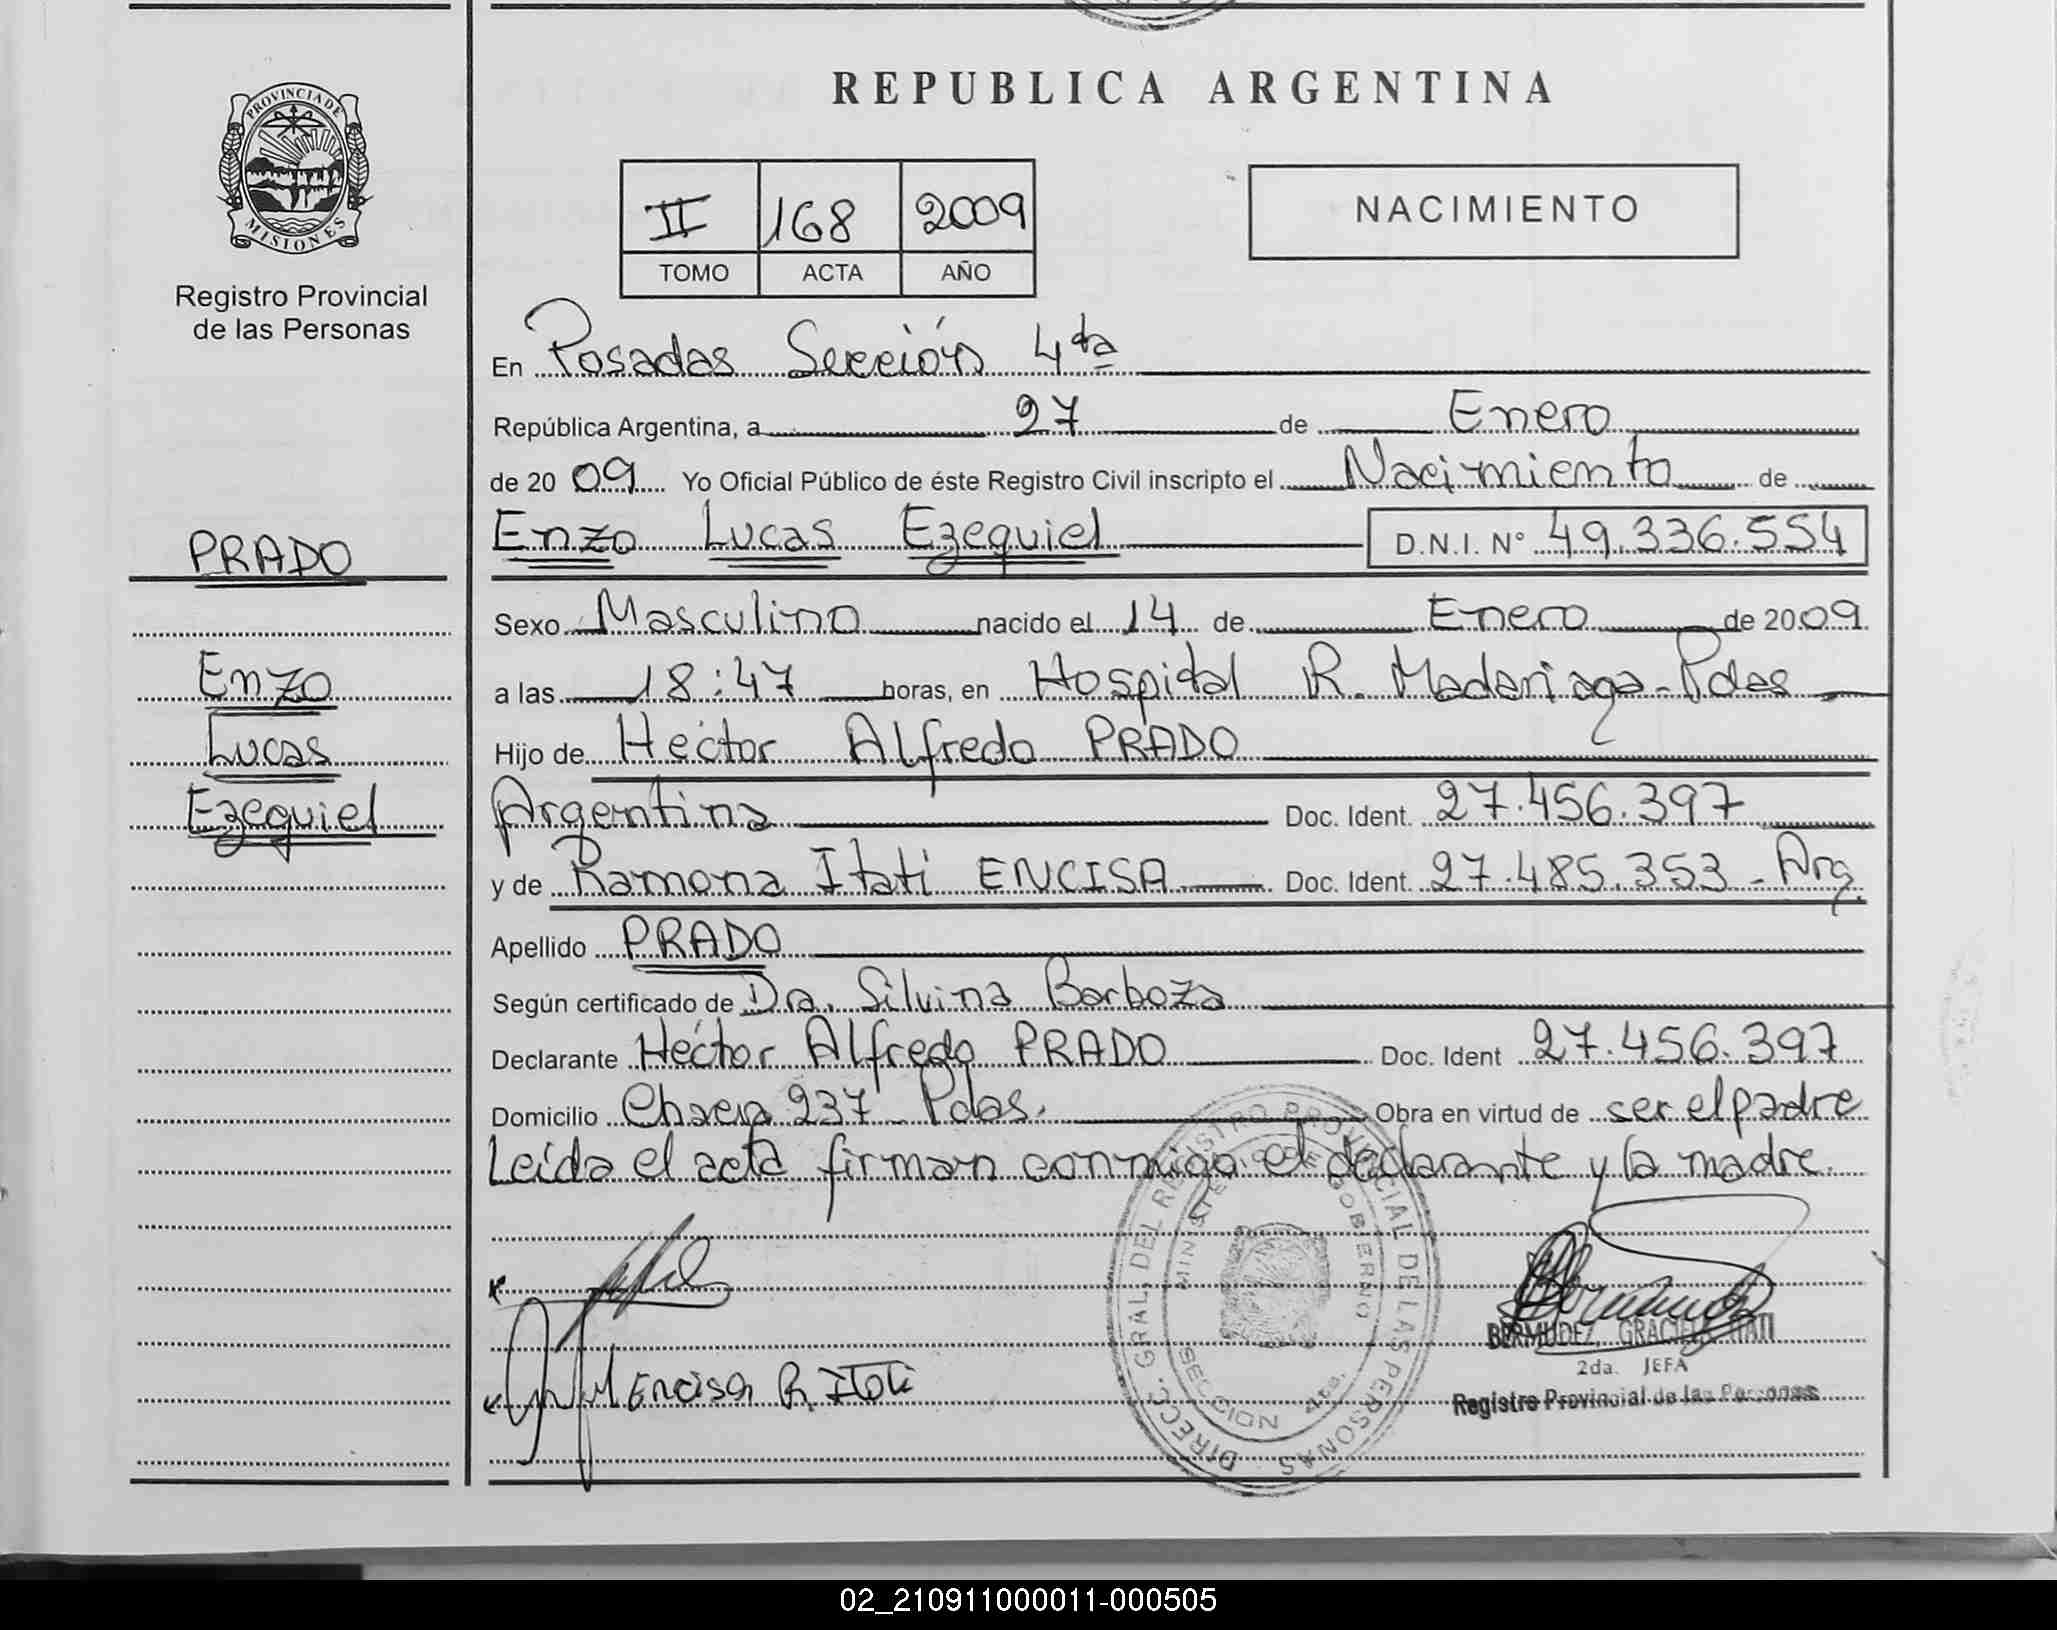 REPUBLICA ARGENTINA
PROVINCIA DE
MISIONES
Registro Provincial
de las Personas
II 168 2009
TOMO ACTA AÑO
NACIMIENTO
En Posadas Sección 4ta
República Argentina, a 27 de Enero
de 2009 Yo Oficial Público de éste Registro Civil inscripto el Nacimiento de
Enzo Lucas Ezequiel D.N.I. N° 49.336.554
PRADO
Enzo
Lucas
Ezequiel
Sexo Masculino nacido el 14 de Enero de 2009
a las 18:47 horas, en Hospital R. Madariaga - Pdas
Hijo de Hector Alfredo PRADO
Argentina Doc. Ident. 27.456.397
y de Ramona Itati ENCISA Doc. Ident. 27.485.353 - Arg.
Apellido PRADO
Según certificado de Dra. Silvina Barboza
Declarante Héctor Alfredo PRADO Doc. Ident 27.456.397
Domicilio 237 Pdas. Obra en virtud de ser el padre
Leída el acta firman conmigo el declarante y la madre.
Encisa R. Itati
DIRECC. GRAL. DEL REGISTRO PROVINCIAL DE LAS PERSONAS
MINISTERIO DE GOBIERNO
SECCION 4ta.
BERMUDEZ, GRACIELA ITATI
2da. JEFA
Registro Provincial de las Personas
02_210911000011-000505